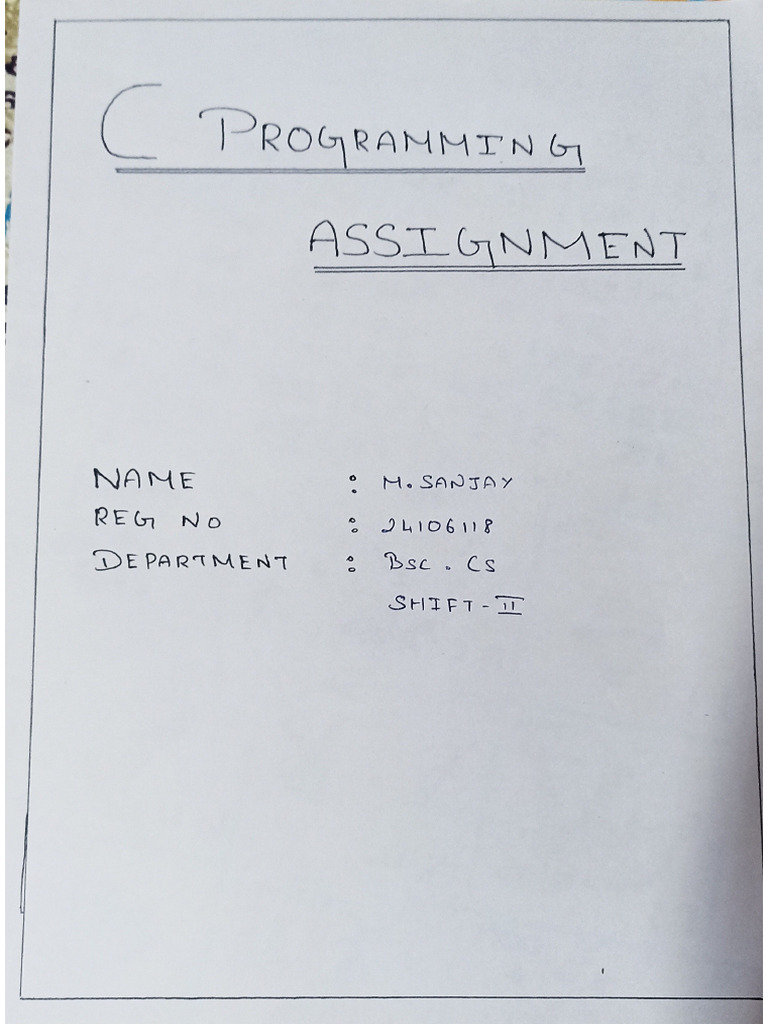 C PROGRAMMING
ASSIGNMENT
NAME : M. SANJAY
REG NO : 24106118
DEPARTMENT : BSC. CS
SHIFT - II